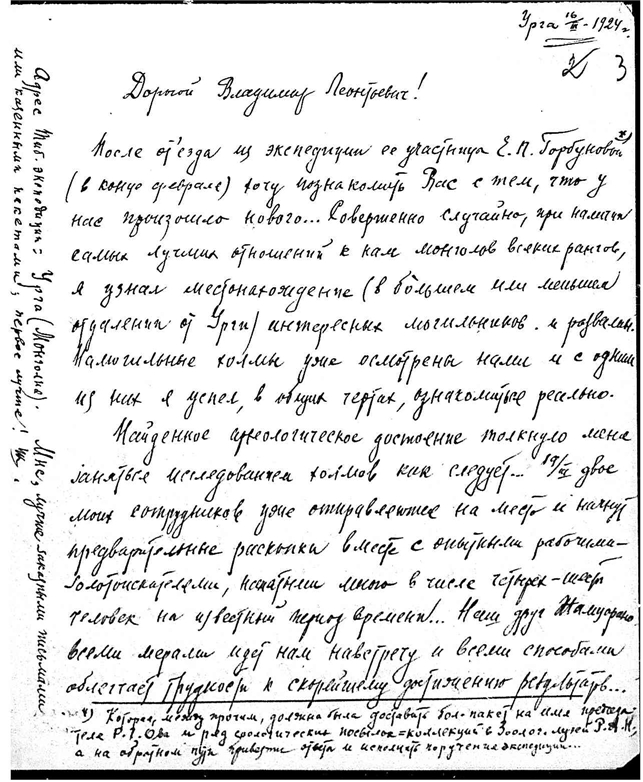 Урга 16/III - 1924 г.
3
Дорогой Владимир Леонтьевич!
После от'езда из экспедиции ее участницы Е. П. Горбуновой *)
(в конце февраля) хочу познакомить Вас с тем, что у
нас произошло нового... Совершенно случайно, при наличии
самых лучших отношений к нам монголов всяких рангов,
я узнал местонахождение (в большем или меньшем
отдалении от Урги) интересных могильников и развалин.
Намогильные холмы уже осмотрены нами и с одним
из них я успел, в общих чертах, ознакомиться реально.
Найденное археологическое достояние толкнуло меня
заняться исследованием холмов как следует... 19/III двое
моих сотрудников уже отправляются на место и начнут
предварительные раскопки вместе с опытными рабочими-
золотоискателями, нанятыми мною в числе четырех-шести
человек на известный период времени!... Наш друг Жамцарано
всеми мерами идет нам навстречу и всеми способами
облегчает трудности к скорейшему достижению результатов...
*) Которая, между прочим, должна была доставить бол. пакет на имя председа
теля Р. Г. О-ва и ряд зоологических посылок = коллекций в Зоолог. музей Р. А. Н,
а на обратном пути привезти ответы и исполнить поручения экспедиции...
Адрес Тиб. экспедиции: Урга (Монголия). Мне, лучше заказными письмами
или казенными пакетами; первое лучше!